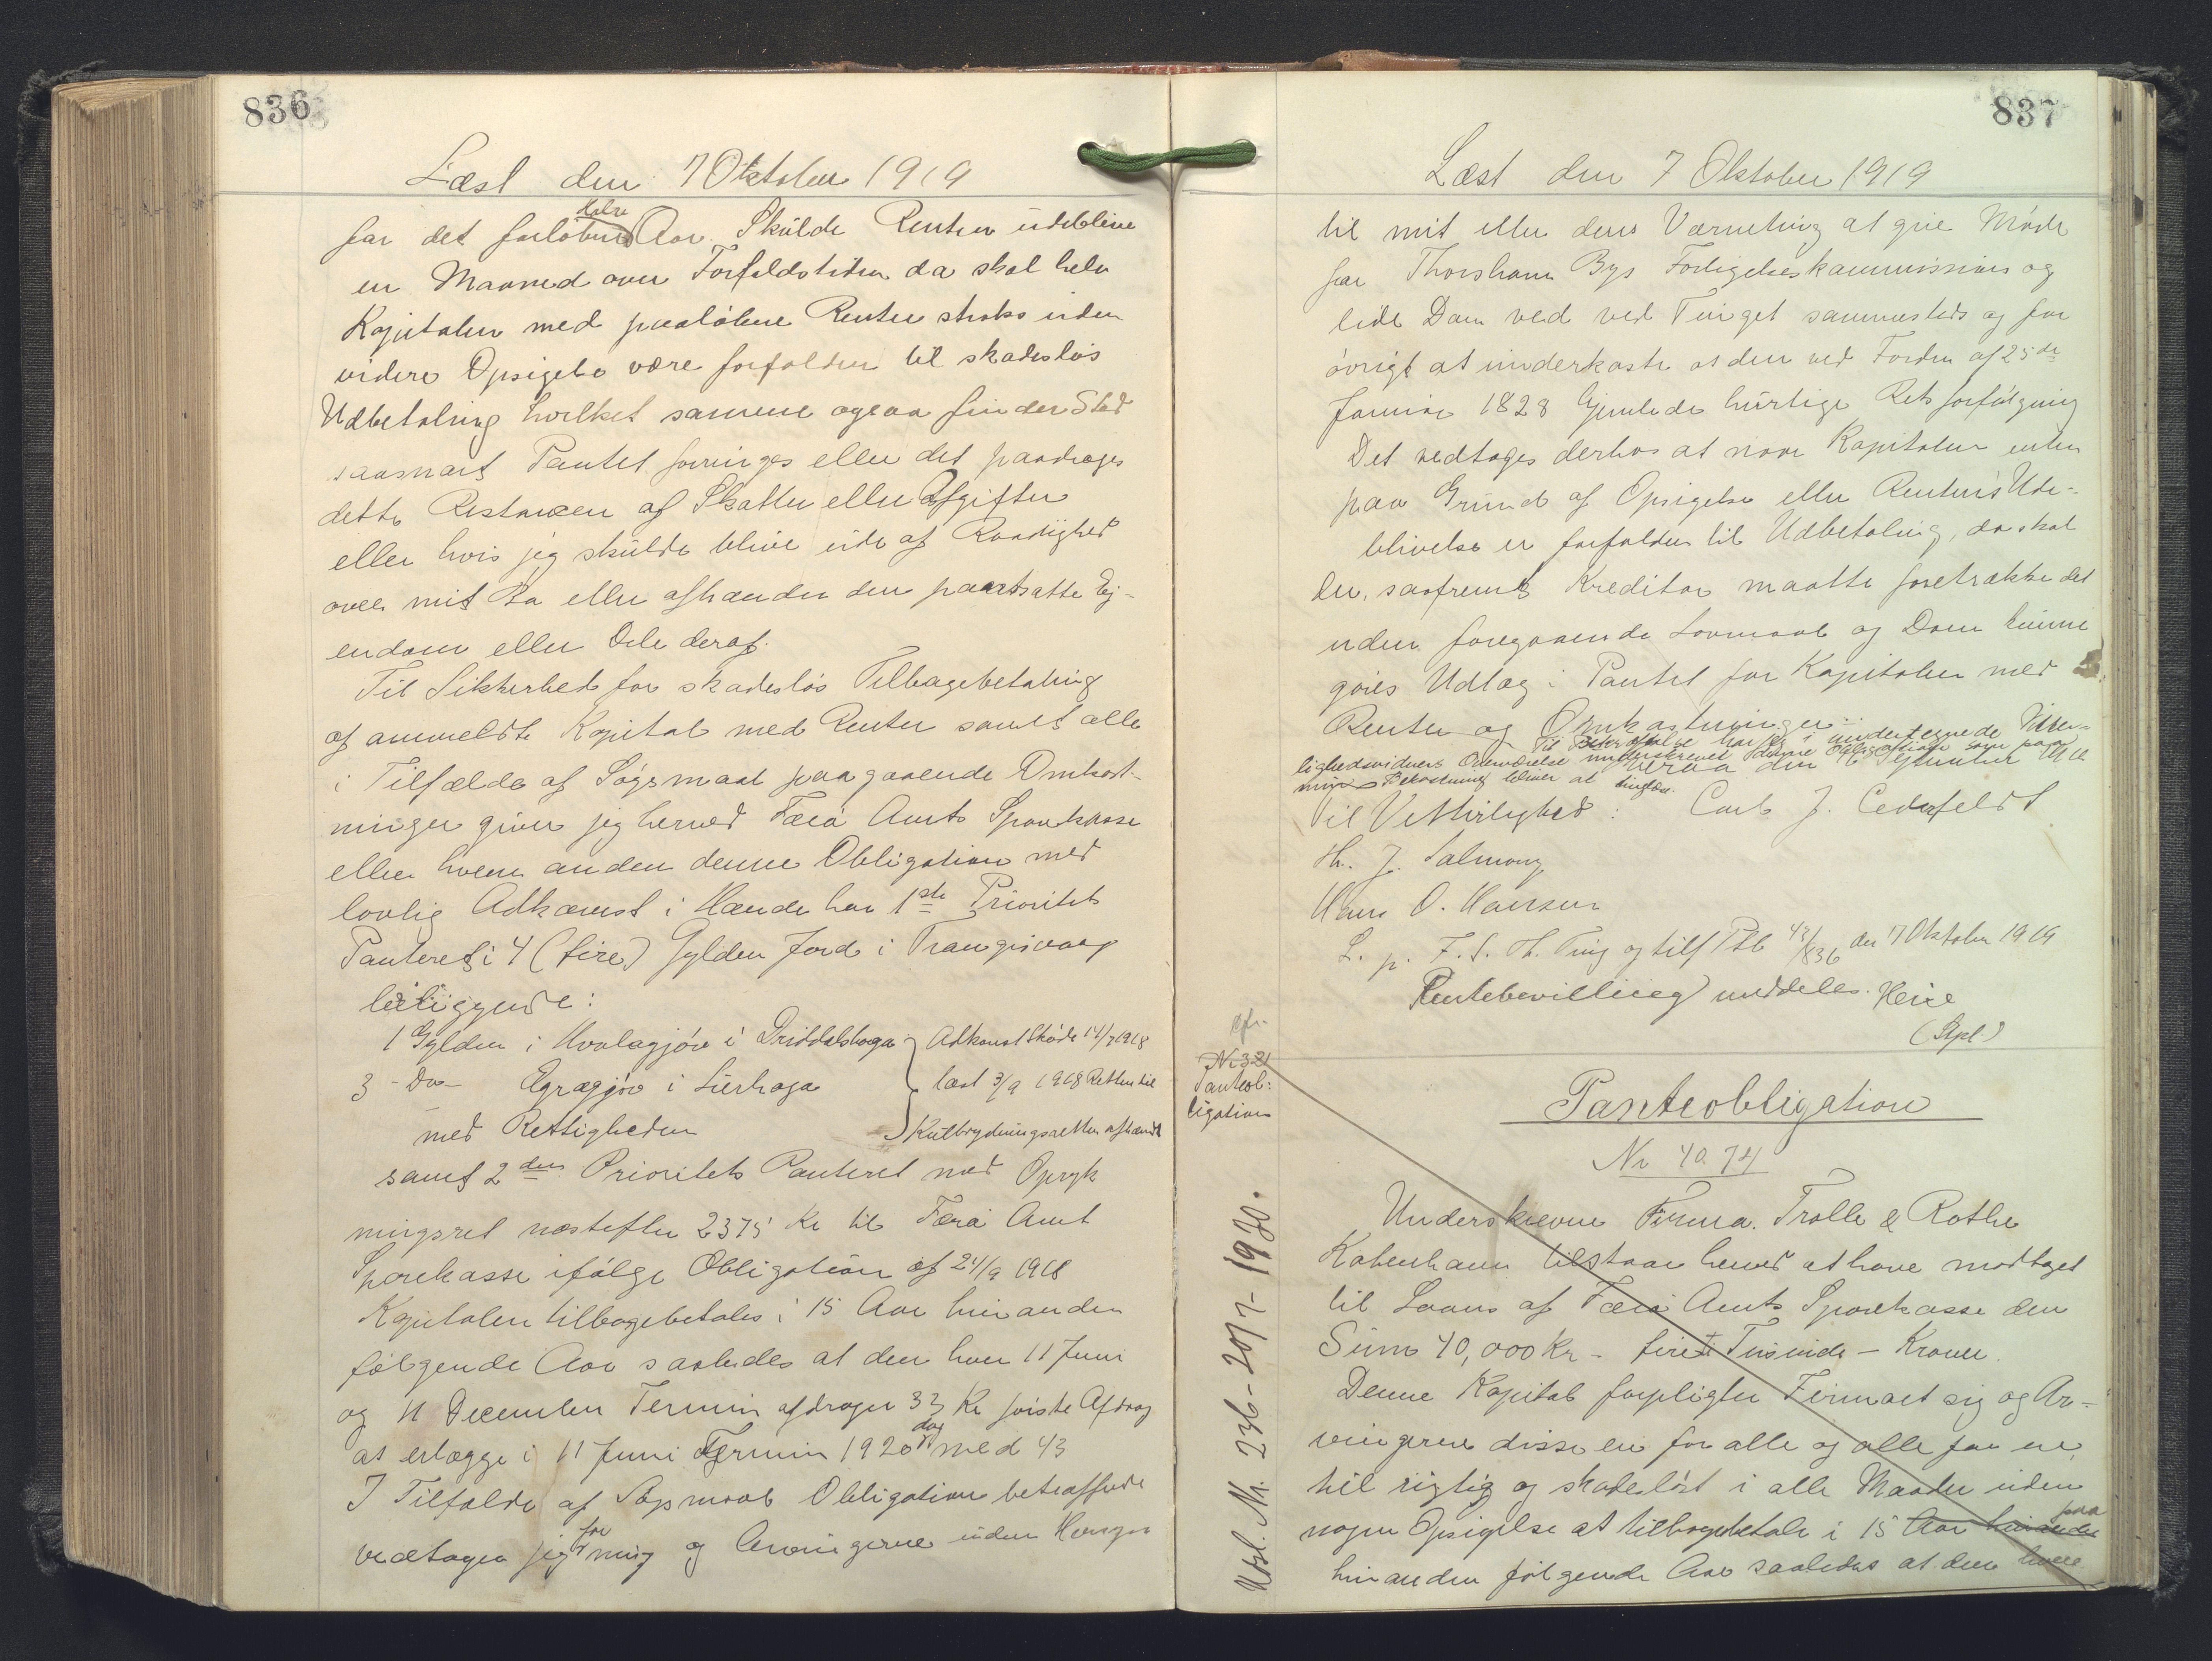 836
Læst den 7 Oktober 1919
for det forløbne halve Aar. Skulde Renten udeblive
en Maaned over Forfaldstiden da skal hele
Kapitalen med paaløbne Renter straks uden
videre Opsigelse være forfalden til skadesløs
Udbetaling hvilket samme ogsaa finder Sted
saasnart Pantet forringes eller det paadrages
dette Restancer af Skatter eller Afgifter
eller hvis jeg skulde blive ude af Raadighed
over mit Bo eller afhænder den pantsatte Ej-
endom eller Dele deraf.
Til Sikkerhed for skadesløs Tilbagebetaling
af anmeldte Kapital med Renter samt alle
i Tilfælde af Søgsmaal paagaaende Omkost-
ninger giver jeg herved Færø Amts Sparekasse
eller hvem anden denne Obligation med
lovlig Adkomst i Hænde har 1ste Prioritets
Panteret i 4 (fire) Gylden Jord i Trangisvaag
beliggende:
1 Gylden i Hvalagjøv i Driddalshaga Adkomst Skøde 14/7 1918
3 - Do - Ægragjøv i Lierhaga læst 3/9 1918 Retten til
med Rettigheder Kulbrydningsretten afhændt
samt 2den Prioritets Panteret med Opryk
ningsret næstefter 2375 Kr til Færø Amt
Sparekasse ifølge Obligation af 24/9 1918
Kapitalen tilbagebetales i 15 Aar hinanden
følgende Aar saaledes at der hver 11 Juni
og 11 December Termin afdrages 33 Kr første Afdrag
at erlægge i 11 Juni Termin 1920 dog med 43
I Tilfælde af Søgsmaal Obligation betræffende
vedtager jeg for mig og Arvingerne uden Hensyn
837
Læst den 7 Oktober 1919
til mit eller deres Værneting at give Møde
for Thorshavn Bys Forligelseskommission og
lide Dom ved ved Tinget sammesteds og for
øvrigt at underkaste os den ved Fordn af 25de
Januar 1828 hjemlede hurtige Retsforfølgning
Det vedtages derhos at naar Kapitalen enten
paa Grund af Opsigelse eller Rentens Ude-
blivelse er forfalden til Udbetaling, da skal
der, saafremt Kreditor maatte foretrække det
uden foregaaende Lovmaal og Dom kunne
gøres Udlæg i Pantet for Kapitalen med
Renter og Omkostninger.
Til Bekræftelse har jeg i undertegnede Vitter-
lighedsvidners Overværelse underskrevet denne Obligation som paa
min Bekostning bliver at tinglæse.
Til Vitterlighed: Carl J. Cederfeldt
Th. J. Salmony
Hans O. Hansen
L. p. F. S. Th. Ting og tilf Ptb 43/836 den 7 Oktober 1919
Rentebevilling meddeles. Heise
(Stpl)
cfr.
Nr 321
Panteob:
ligation
Udsl. Nr. 236 - 20/7 - 1930.
Panteobligation
Nr 4074
Underskrevne Firma. Trolle & Rothe
København tilstaar herved at have modtaget
til Laans af Færø Amts Sparekasse den
Sum 40,000 Kr - firti Tusinde - Kroner.
Denne Kapital forpligter Firmaet sig og Ar-
vingerne disse en for alle og alle for en
til rigtig og skadesløst i alle Maader uden
nogen Opsigelse at tilbagebetale i 15 Aar hinanden paa
hinanden følgende Aar saaledes at der hver